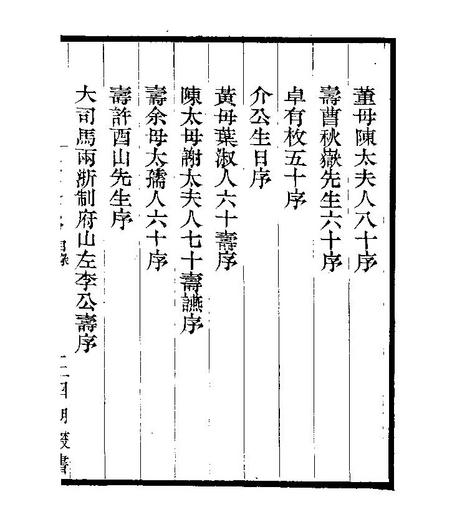 董母陳太夫人八十序
壽曹秋嶽先生六十序
卓有枚五十序
介公生日序
黃母葉淑人六十壽序
陳太母謝太夫人七十壽讌序
壽余母太孺人六十序
壽許酉山先生序
大司馬兩浙制府山左李公壽序
目錄
四明叢書